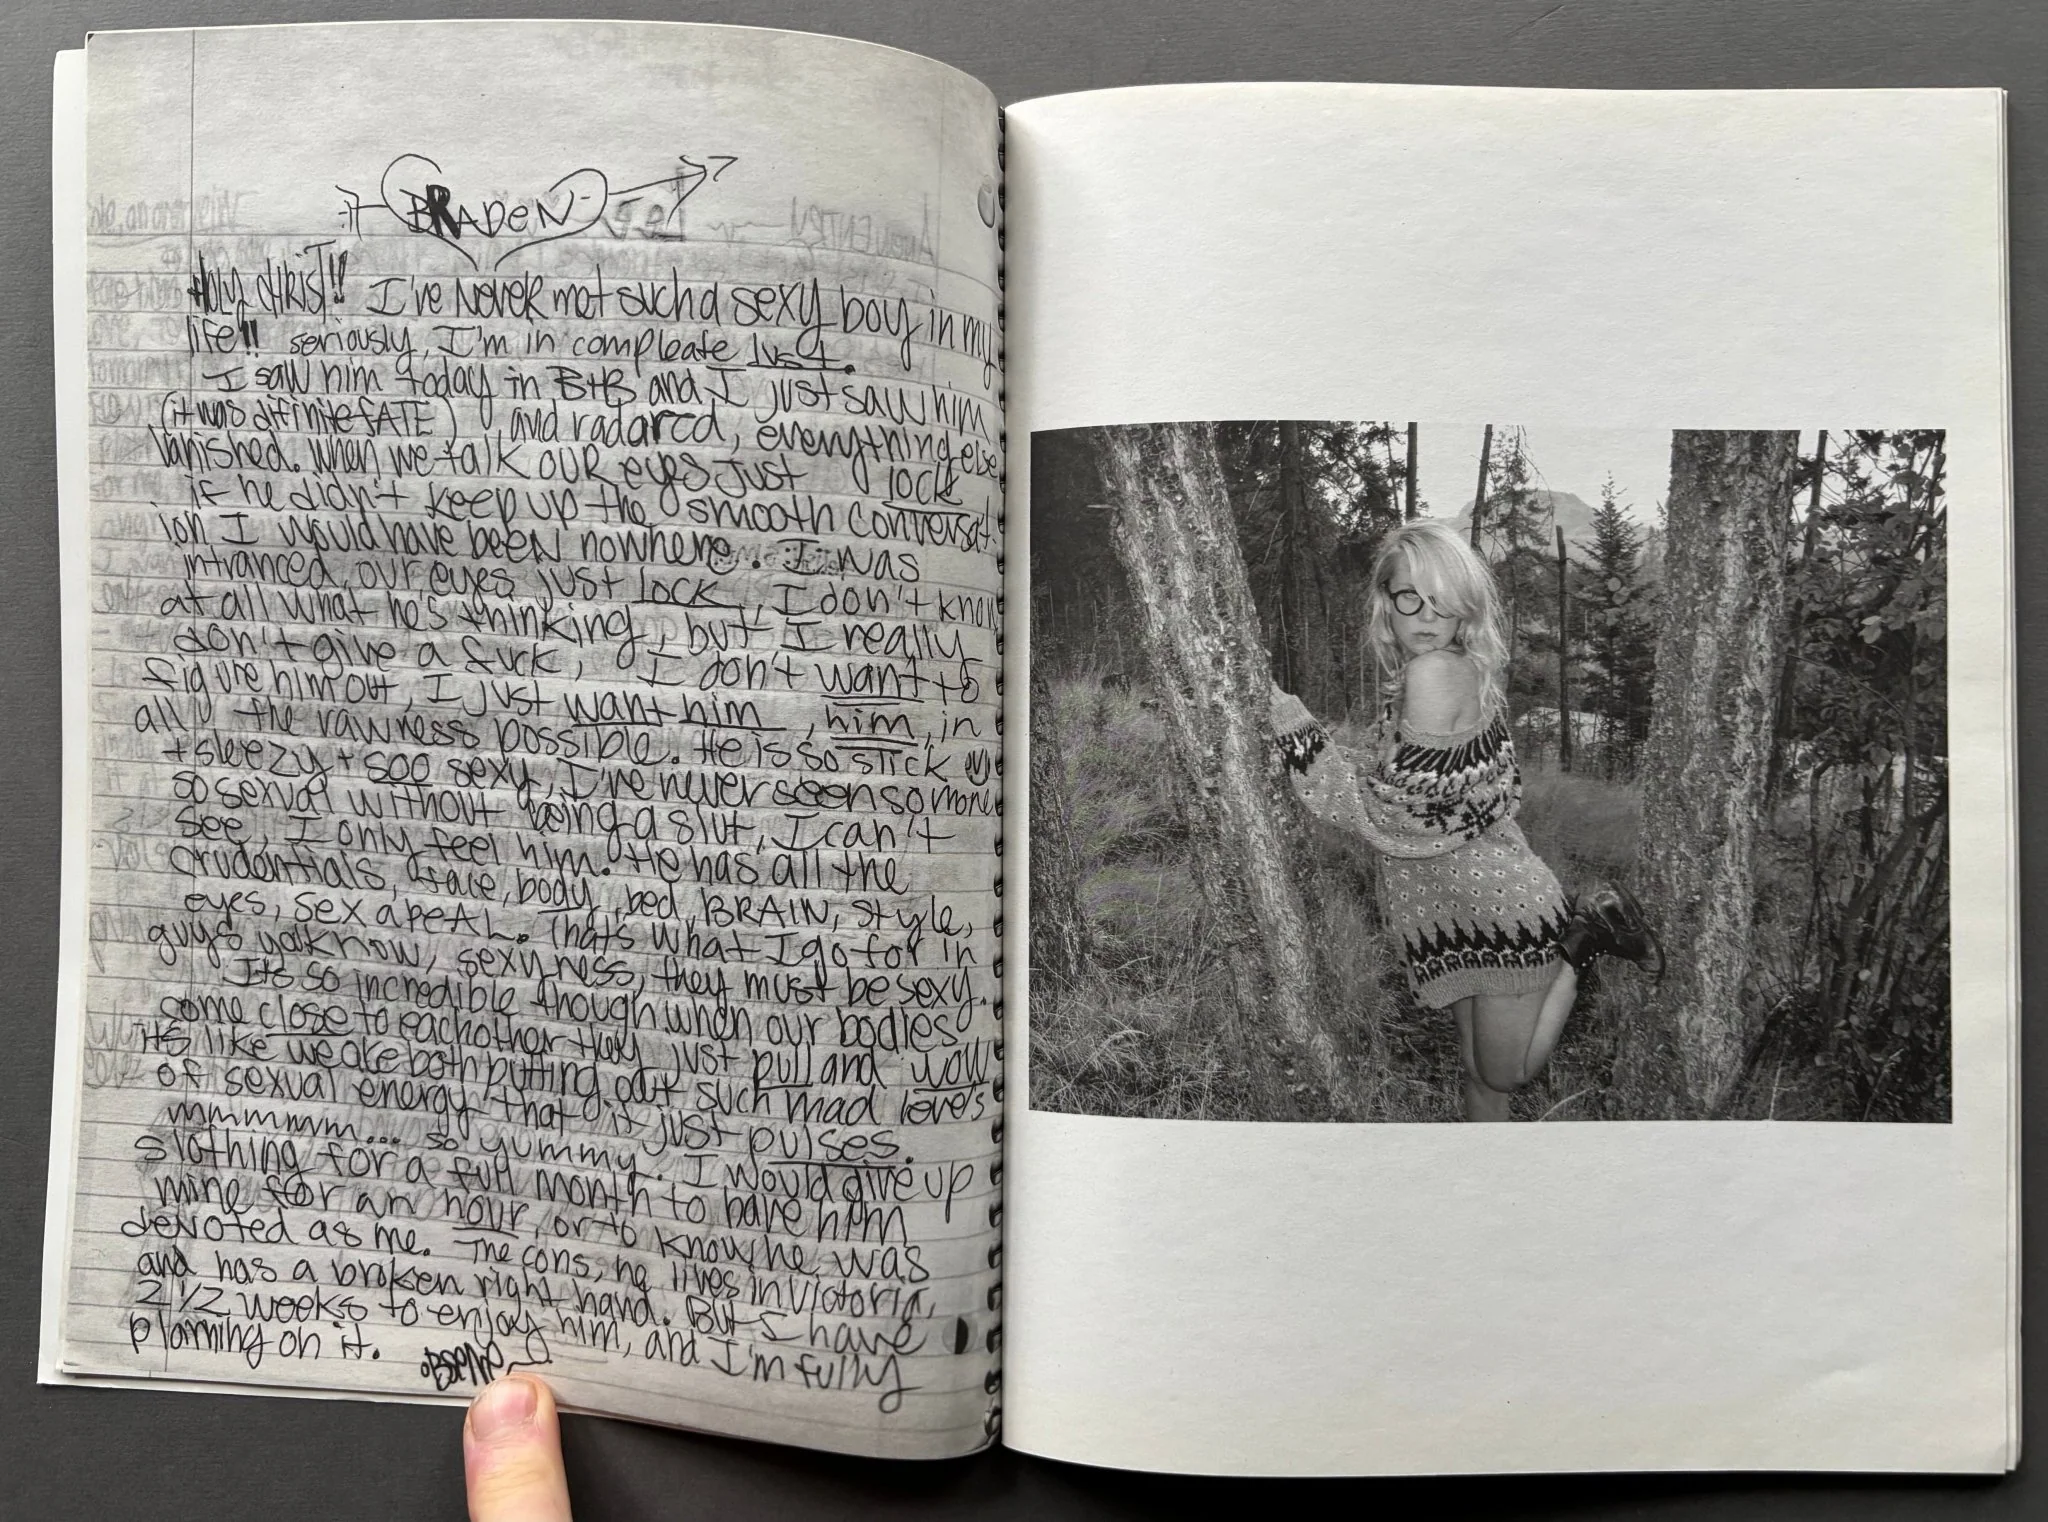 BRADEN
Holy CHRIST!! I've NEVER met such a sexy boy in my
life!! seriously, I'm in compleate lust.
I saw him today in B+B and I just saw him
(it was difinite FATE) and radared, everything else
vanished. when we talk our eyes just lock
if he didn't keep up the smooth conversat-
ion I would have been nowhere. I was
intranced, our eyes just lock, I don't know
at all what he's thinking, but I really
don't give a fuck, I don't want to
figure him out, I just want him, him, in
all the rawness possible. He is so stick
+ sleezy + soo sexy, I've never seen someone
so sexual without being a slut, I can't
see, I only feel him. He has all the
crudentials, face, body, bed, BRAIN, style,
eyes, sex apeAL. Thats what I go for in
guys yaknow, sexyness, they must be sexy.
Its so incredible though when our bodies
some close to eachother they just pull and wow
it's like we are both putting out such mad levels
of sexual energy that it just pulses.
mmmmm... so yummy. I would give up
slothing for a full month to have him
mine for an hour, or to know he was
devoted as me. The cons, he lives in victoria,
and has a broken right hand. But I have
2 1/2 weeks to enjoy him, and I'm fully
planning on it.